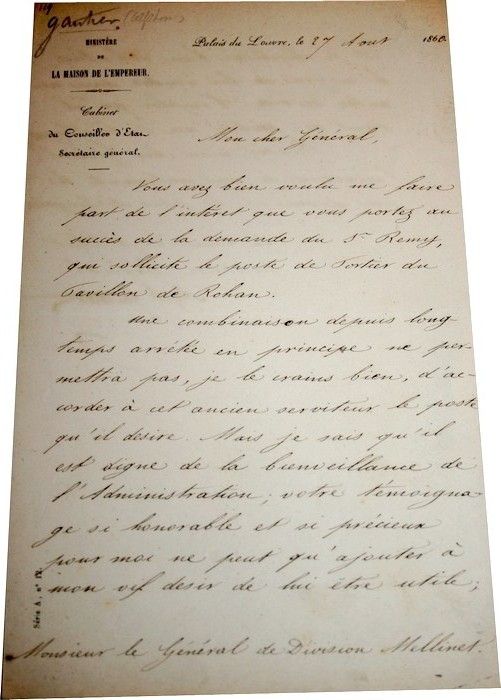 119
gautier (Alphon)
MINISTÈRE
DE
LA MAISON DE L'EMPEREUR.
Cabinet
du Conseiller d'Etat
Secrétaire général.
Palais du Louvre, le 27 Aout 1860.
Mon cher Général,
Vous avez bien voulu me faire
part de l'intérêt que vous portez au
succès de la demande du Sr Remy,
qui sollicite le poste de Portier du
Pavillon de Rohan.
Une combinaison depuis long
temps arrêtée en principe ne per
mettra pas, je le crains bien, d'ac-
corder à cet ancien serviteur le poste
qu'il desire. Mais je sais qu'il
est digne de la bienveillance de
l'Administration; votre témoigna
ge si honorable et si précieux
pour moi ne peut qu'ajouter à
mon vif desir de lui être utile;
Monsieur le Général de Division Mellinet.
Série A, n° 12.